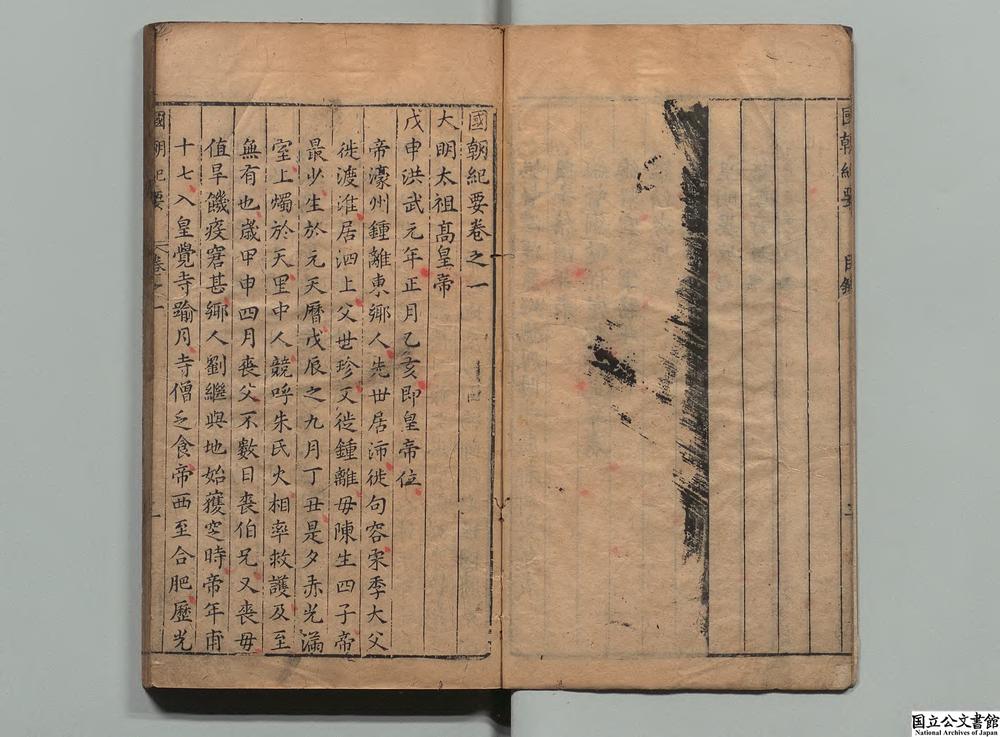 國朝紀要 目錄
二
國朝紀要卷之一
大明太祖髙皇帝
戊申洪武元年正月乙亥即皇帝位
帝濠州鍾離東鄉人先世居沛徙句容宋季大父
徙渡淮居泗上父世珍又徙鍾離母陳生四子帝
最少生於元天曆戊辰之九月丁丑是夕赤光滿
室上燭於天里中人競呼朱氏火相率救護及至
無有也歲甲申四月喪父不數日喪伯兄又喪母
值旱饑疫窘甚鄉人劉繼與地始獲窆時帝年甫
十七入皇覺寺踰月寺僧乏食帝西至合肥歷光
國朝紀要 卷之一
一
国立公文書館
National Archives of Japan